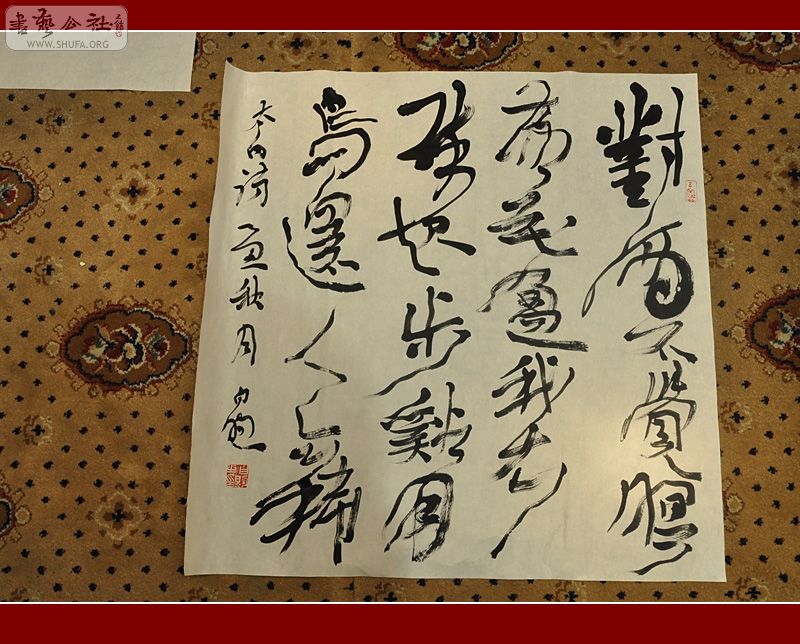 書藝公社
WWW.SHUFA.ORG
對酒不覺暝
落花盈我衣
醉起步谿月
鳥還人亦稀
太白詩 秋月